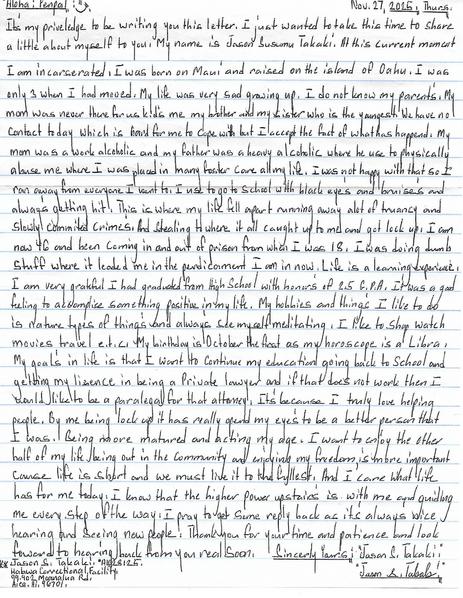 Aloha: Penpal Nov. 27, 2015, Thurs.
It's my priveledge to be writing you this letter. I just wanted to take this time to share
a little about myself to you. My name is Jason Susumu Takaki. At this current moment
I am incarserated. I was born on Maui and raised on the island of Oahu. I was
only 3 when I had moved. My life was very sad growing up. I do not know my parents. My
mom was never there for us kid's me my brother and my sister who is the youngest. We have no
contact today which is hard for me to cope with but I accept the fact of what has happend. My
mom was a work alcoholic and my father was a heavy alcoholic where he use to physically
abuse me where I was placed in many foster care all my life. I was not happy with that so I
ran away from everyone I want to. I use to go to School with black eyes and bruises and
always getting hit. This is where my life fell apart running away alot of truancy and
slowly commited crimes. And stealing to where it all caught up to me and got lock up. I am
now 46 and been coming in and out of prison from when I was 18. I was doing dumb
stuff where it leaded me in the perdicament I am in now. Life is a learning experience.
I am very grateful I had graduated from High School with honor's of 2.5 G.P.A. It was a good
feling to accomplise something positive in my life. My hobbies and thing's I like to do
is nature types of thing's and always see myself meditating. I like to shop watch
movies travel e.t.c. My birthday is October the first as my horoscope is a Libra.
My goals in life is that I want to continue my education going back to School and
getting my lisence in being a private lawyer and if that does not work then I
would like to be a paralegal for that attorney. It's because I truly love helping
people. By me being lock up it has really open my eye's to be a better person that
I was. Being more matured and acting my age. I want to enjoy the other
half of my life being out in the community and enjoying my freedom is more important
cause life is short and we must live it to the fullest. And I came what life
has for me today. I know that the higher power upstairs is with me and guiding
me every step of the way. I pray to get some reply back as it's always nice
hearing and seeing new people. Thank you for your time and patience and look
foward to hearing back from you real soon. Sincerly Yours, Jason S. Takaki
Jason S. Takaki
Halawa Correctional Facility "Jason S. Takaki"
99-902 Moanalua Rd.
Aiea, HI. 96701